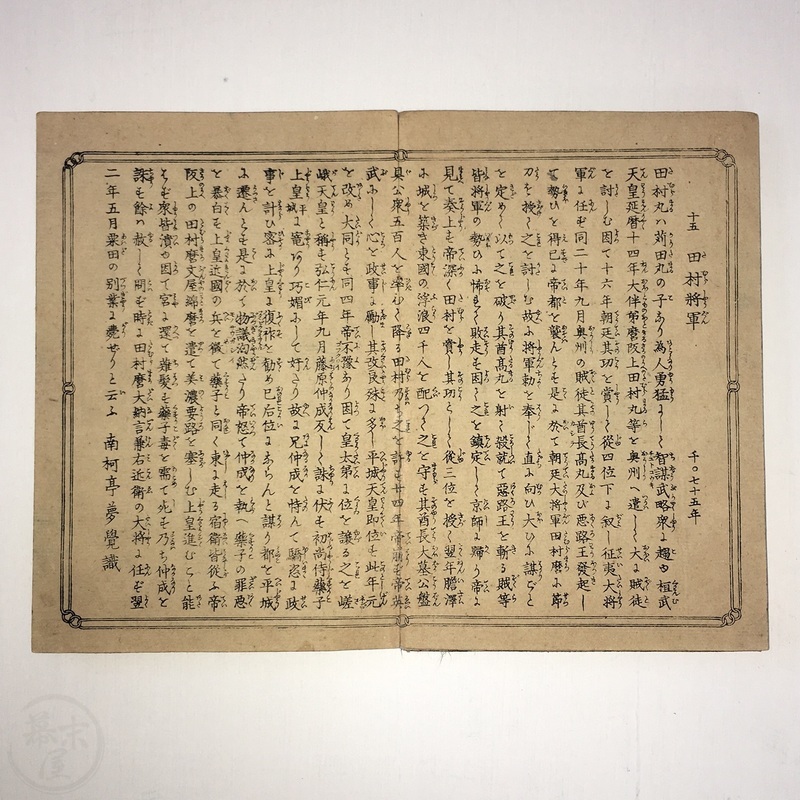 十五　田村将軍　千〇七十五年
田村丸ハ苅田丸の子なり為人勇猛にして智謀武略衆に超ゆ桓武
天皇延暦十四年大伴弟麿阪上田村丸等を奥州へ遣して大に賊徒
を討しむ因て十六年朝廷其功を賞して従四位下に叙し征夷大将
軍に任ず同二十年九月奥州の賊徒其酋長高丸及び悪路王発起し
勢ひを得已に帝都を襲んとす是に於て朝廷大将軍田村麿に節
刀を授て之を討しむ故ふ将軍勅を奉じて直に向ひ大ひに謀ごと
を定め以て之を破り其酋高丸を射て殺就て悪路王を斬る賊等
皆将軍の勢ひに怖れて敗走す因て之を鎮定し京師に踊り帝に
見て奏上す帝深く田村を賞し其功として従三位を授く翌年膽澤
に城を築き東國の浮浪四千人を配つて之を守す其酋長大墓公盤
具公衆五百人を率ひて降る田村乃ち之を許す廿四年帝崩ず帝英
武にして心を政事に勵し其改良殊に多し平城天皇即位す此年元
を改め大同とす同四年帝不豫あり因て皇太弟に位を譲る之を嵯
峨天皇と稱す弘仁元年九月藤原仲成反して誅に伏す初尚侍藥子
上皇平城に寵あり巧媚にして奸さり故に兄仲成を恃んで驕恣に政
事を計ひ密に上皇に復祚を勧め已后位にならんと謀り都を平城
に遷んとす是に於て物議洶然たり帝怒て藥子を執へ藥子の罪悪
を暴白す上皇近國の兵を徴て藥子と同く東に走る宿衛皆従ふ帝
阪上の田村麿文屋綿麿を遣て美濃要路を塞しむ上皇進むこと能
はず衆皆潰ゆ因て宮に還て薙髪す藥子毒を需て死す乃ち仲成と
誅す餘ハ赦して問ず時に田村麿大納言兼右近衛の大将に任ず翌
二年五月粟田の別業に薨ぜりと云ふ　南柯亭夢覺識
幕末屋